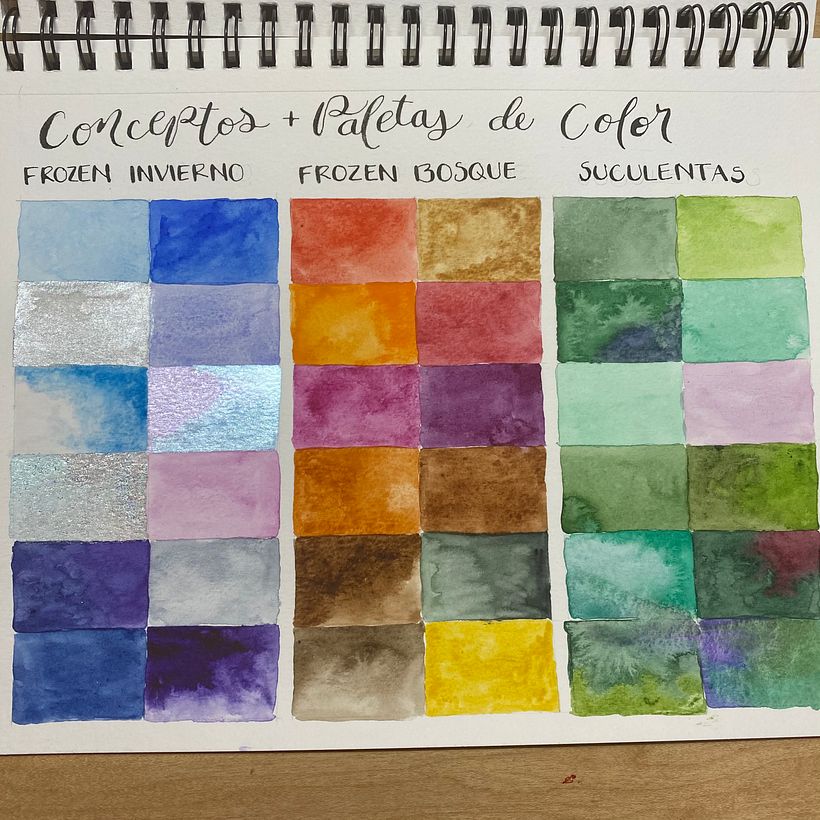 Conceptos + Paletas de Color
FROZEN INVIERNO
FROZEN BOSQUE
SUCULENTAS